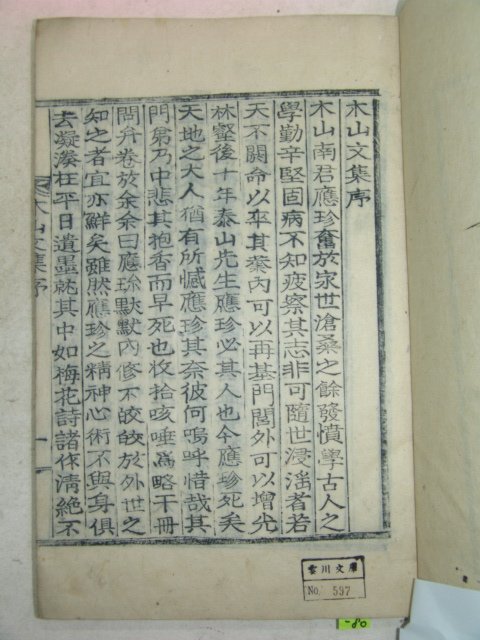 木山文集序
木山南君應珍奮於家世滄桑之餘發憤學古人之
學勤辛堅固病不知疲察其志非可隨世浸滛者若
天不閼命以卒其業內可以再基門閭外可以增光
林壑後十年泰山先生應珍必其人也今應珍死矣
天地之大人猶有所憾應珍其奈彼何嗚呼惜哉其
門弟乃中悲其抱香而早死也收拾咳唾爲略干冊
問弁卷於余余曰應珍默默內修不皎皎於外世之
知之者宜亦鮮矣雖然應珍之精神心術不與身俱
去凝湊在平日遺墨就其中如梅花詩諸作淸絶不
木山文集序
一
雲川文庫
No. 597
-80